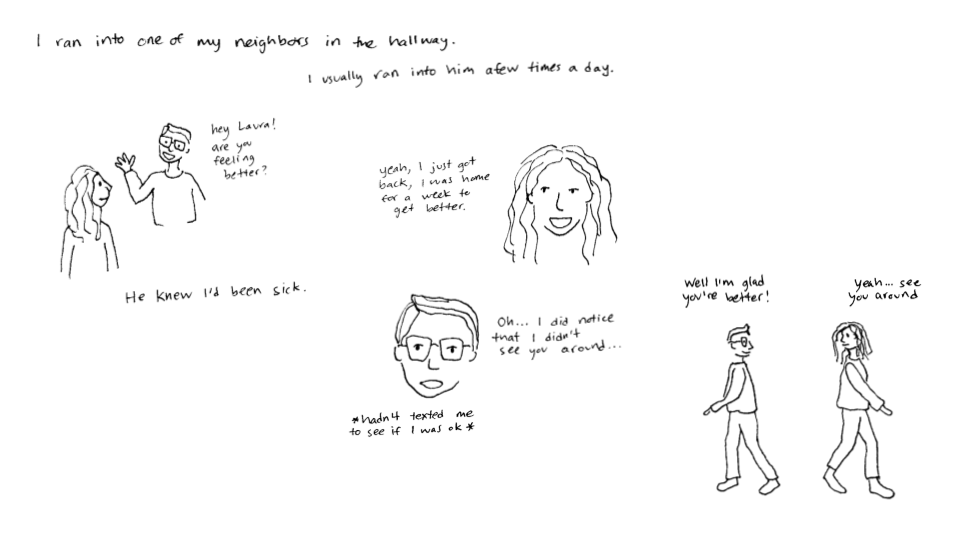 I ran into one of my neighbors in the hallway.
I usually ran into him a few times a day.
hey Laura!
are you
feeling
better?
yeah, I just got
back, I was home
for a week to
get better.
He knew I'd been sick.
Oh... I did notice
that I didn't
see you around...
*hadn't texted me
to see if I was ok*
Well I'm glad
you're better!
Yeah... see
you around